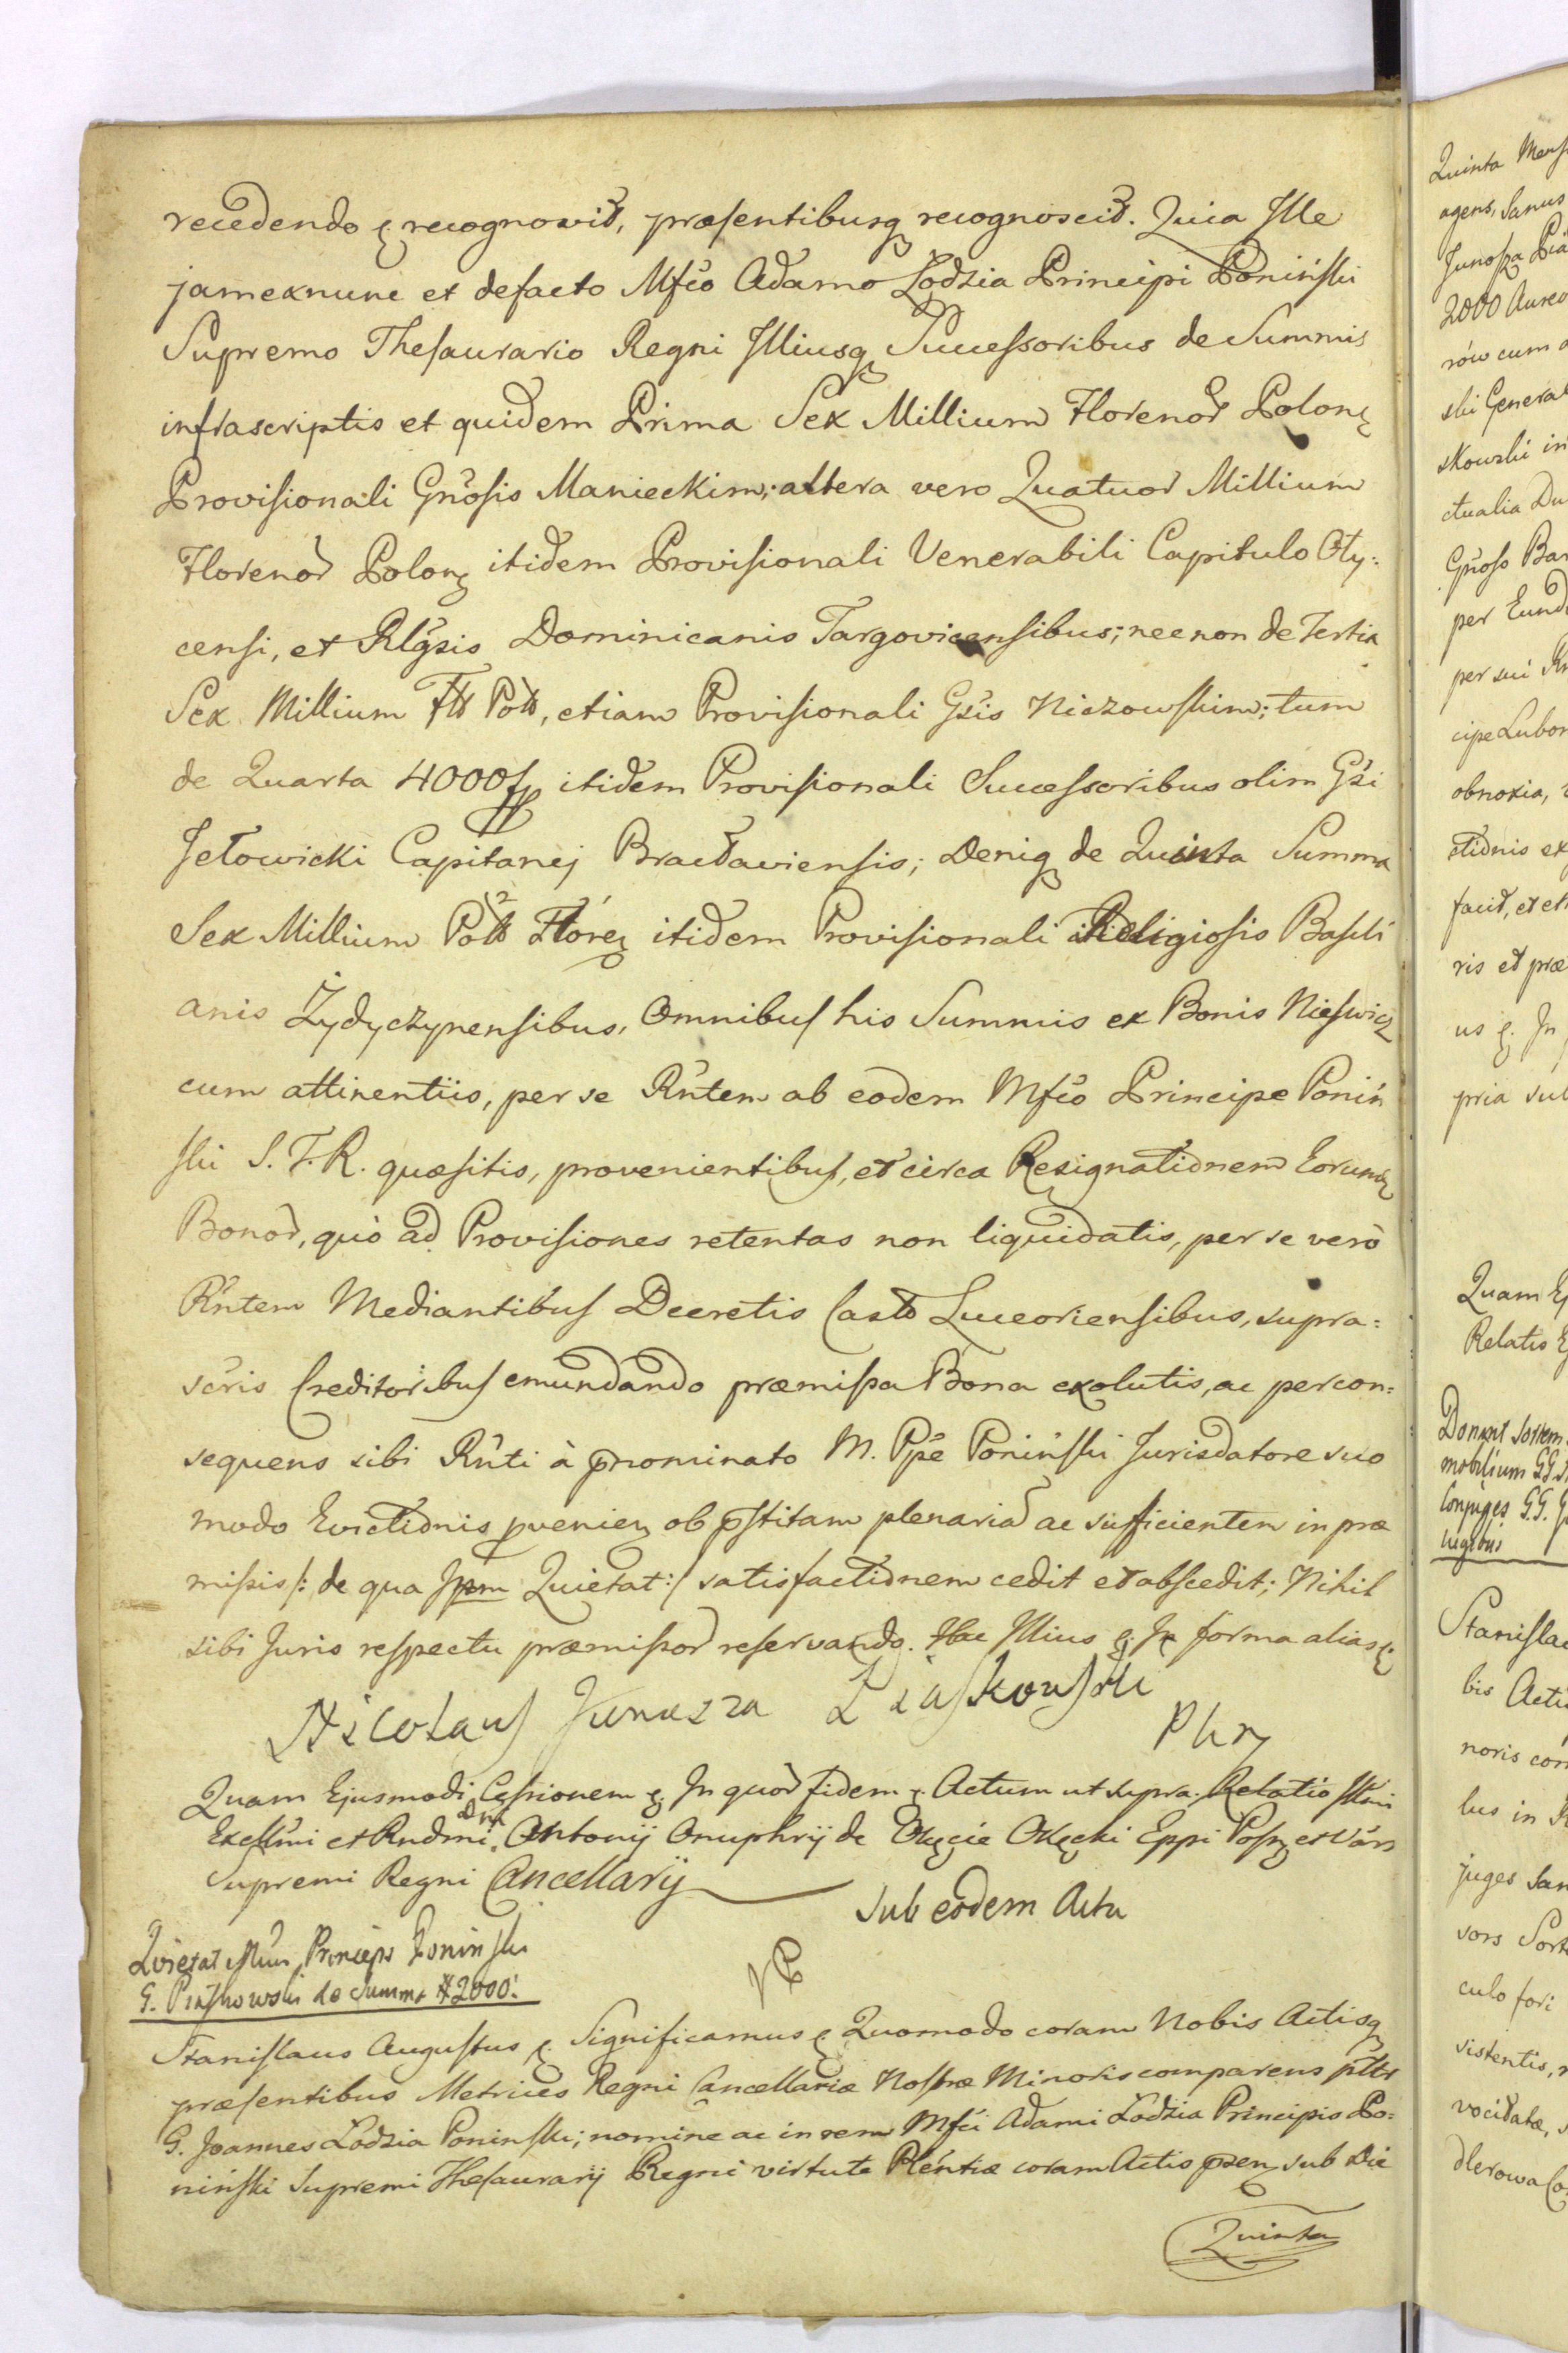 recedendo ę recognovit, præsentibusq recognoscit. Quia Ille
jamexnunc et defacto Mfco Adamo Łodzia Principi Poniński
Supremo Thesaurario Regni Illiusq Successoribus de Summis
infrascriptis et quidem Prima Sex Millium Florenor Polonę
Provisionali Gnosis Manieckim; altera vero Quatuor Millium
Florenor Polonę itidem Provisionali Venerabili Capitulo Oły:
censi, et Rlgsis Dominicanis Targovicensibus; necnon de Tertia
Sex Millium Fll Poll, etiam Provisionali Gsis Niezowskim; tum
de Quarta 4000 fp itidem Provisionali Successoribus olim Gsi
Jełowicki Capitanej Bracłaviensis; Deniq de Quinta Summa
Sex Millium Poll Florę itidem Provisionali Religiosis Basili
anis Żydyczynensibus, Omnibus his Summis ex Bonis Nieswicz
cum attinentiis, per se Rntem ab eodem Mfco Principe Poniń
ski S. T. R. quæsitis, provenientibus, et circa Resignationem Eorumdę
Bonor, quò ad Provisiones retentas non liquidatis, per se verò
Rntem Mediantibus Decretis Castr Luceoriensibus, supra=
scris Creditoribus emundando præmissa Bona exolutis, ac percon=
sequens sibi Rnti à prnominato M. Ppe Poniński Jurisdatore suo
modo Evictionis pveniensę ob pstitam plenariam ac sufficientem in præ
missis /: de qua Ipsm Quietat :/ satisfactionem cedit et abscedit; Nihil
sibi Juris respectu præmissor reservando. Hac Illius ę. In forma alias ę
Nicolaus Junosza Piaskowski
Quam Ejusmodi Cessionem ę. In quor fidem ę. Actum ut supra. Relatio Illmi
Excllmi et Rndmi Dni Antonij Onuphrij de Okęcie Okęcki Eppi Posnę et Vars
Supremi Regni Cancellarij
Sub eodem Actu
Quietat Illmus Princeps Poninski
G. Piaskowski de Summa # 2000.
Stanislaus Augustus ę. Significamus ę Quomodo coram Nobis Actisq
præsentibus Metrices Regni Cancellariæ Nostræ Minoris comparens pltr
G. Joannes Lodzia Poninski; nomine ac in rem Mfci Adami Lodzia Principis Po=
niński Supremi Thesaurarij Regni virtute Plentiæ coram Actis psenę sub Die
Quinta
Quinta Mens
agens, Sanus
Junosza Pia
2000 Aureo
rów cum
ski General
skowski in
ctualia Du
Gnoso Bar
per Eund
per sui
cipe Lubor
obnoxia,
ctionis ex
facit, et
ris et præ
us ę. In
pria sub
Quam Ej
Relatio
Donant sortem
mobilium GG
Conjuges G.G.
Stanislau
bis Acti
noris com
lus in
juges San
sors Sort
culo fori
sistentis,
vocitatæ,
dlerowa